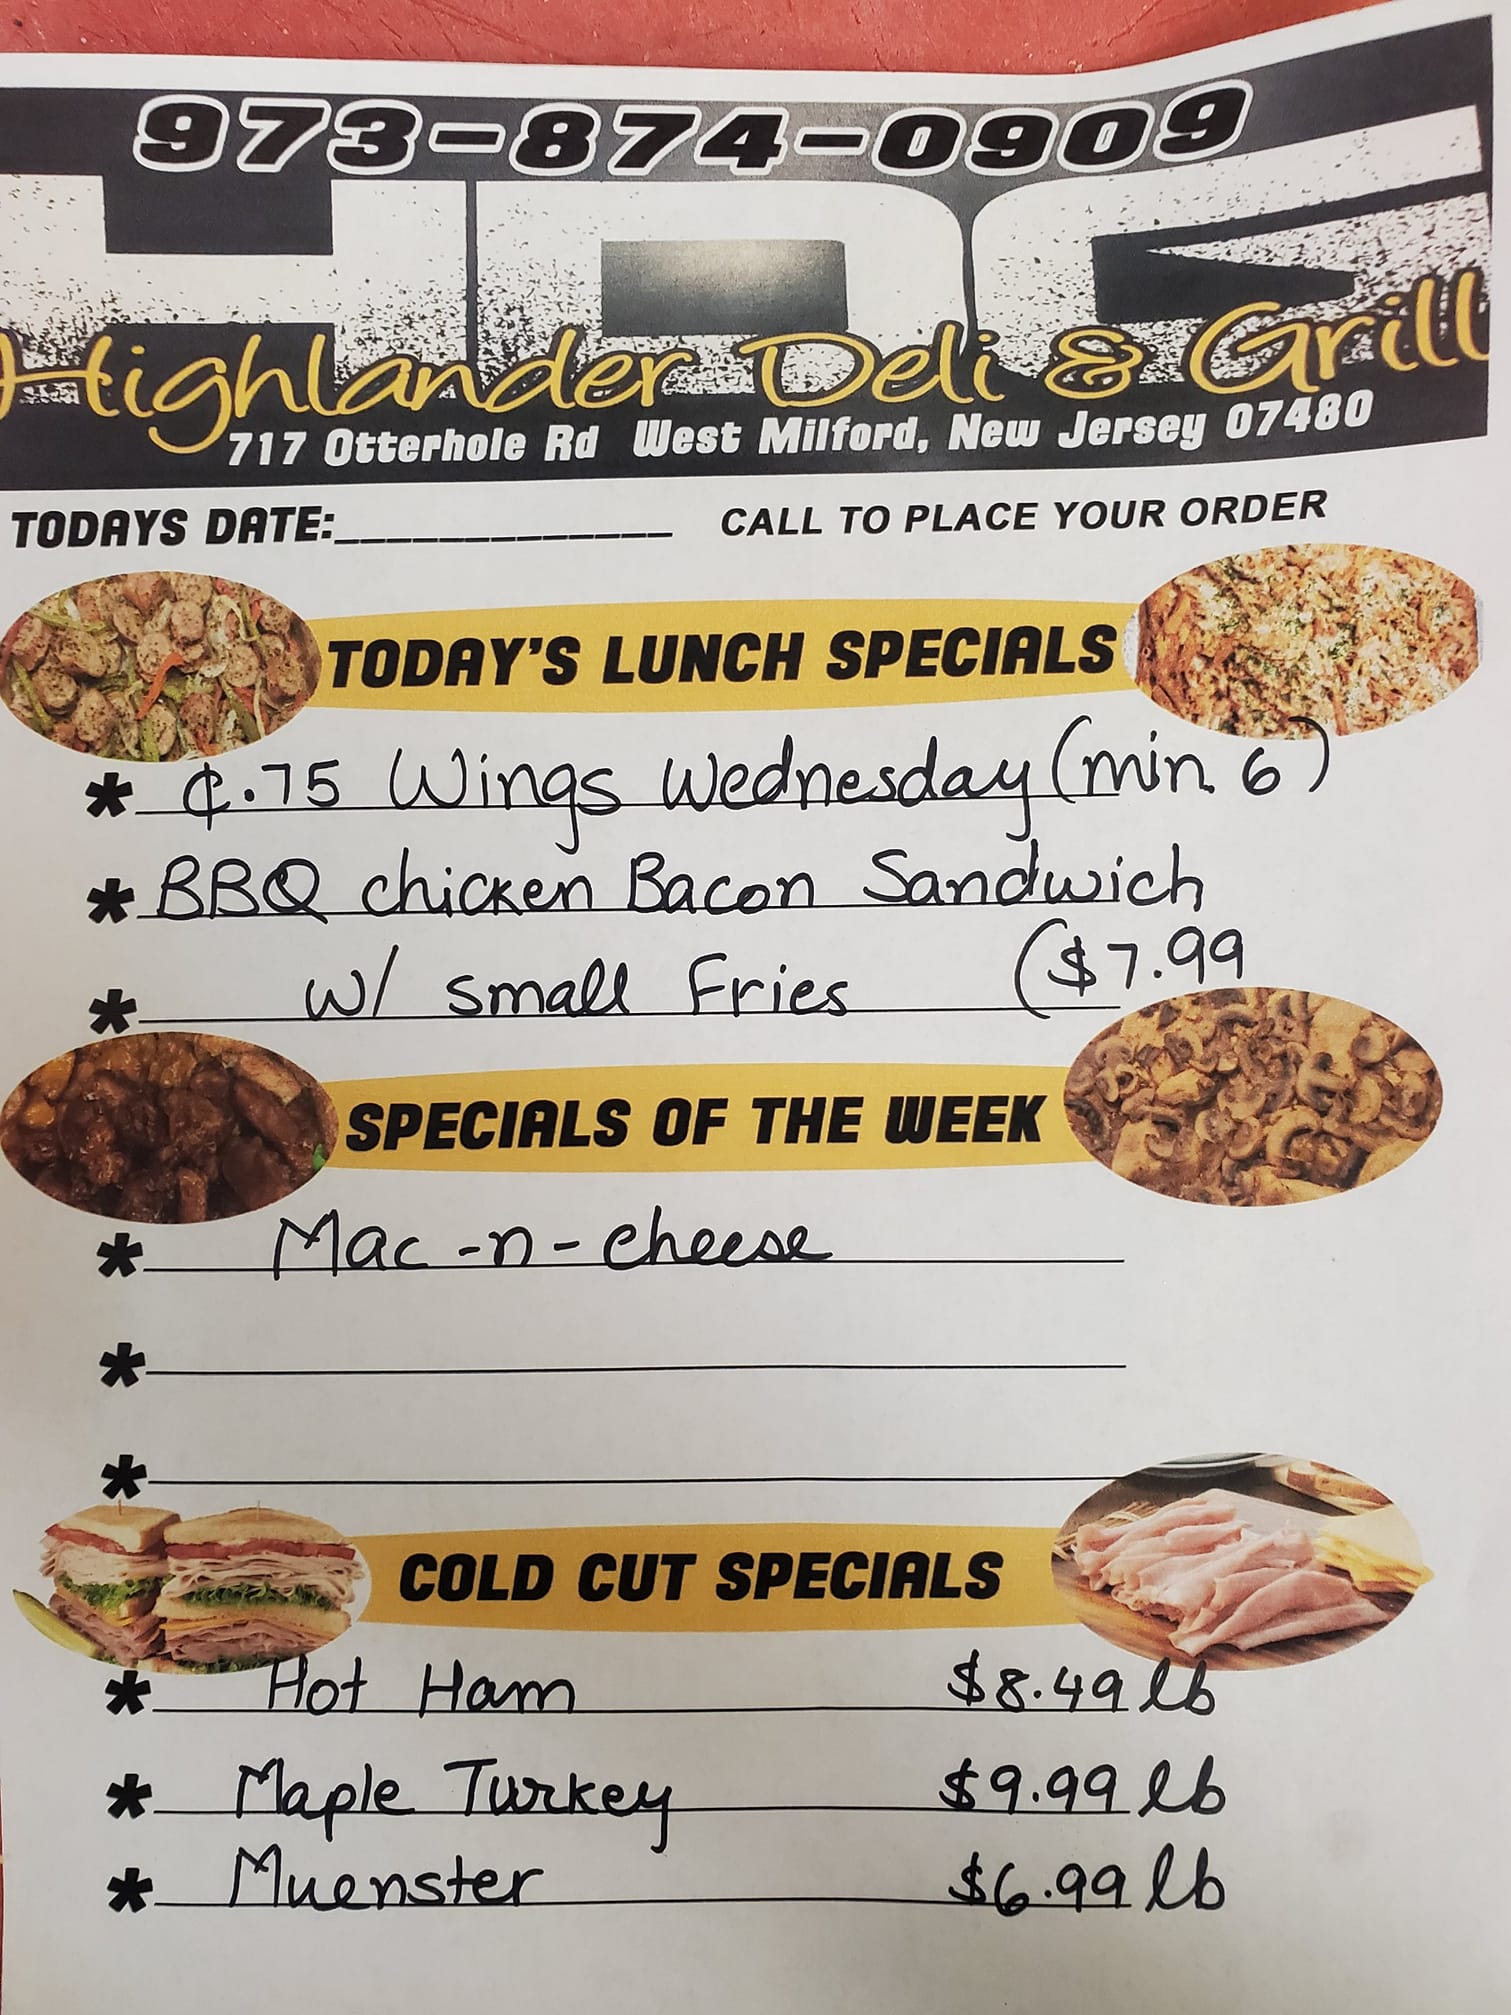 973-874-0909
HDG
Highlander Deli & Grill
717 Otterhole Rd West Milford, New Jersey 07480
TODAYS DATE:_____________ CALL TO PLACE YOUR ORDER
TODAY'S LUNCH SPECIALS
* ¢.75 Wings Wednesday (min. 6)
* BBQ chicken Bacon Sandwich
* w/ small Fries ($7.99
SPECIALS OF THE WEEK
* Mac-n-cheese
*
*
COLD CUT SPECIALS
* Hot Ham $8.49 lb
* Maple Turkey $9.99 lb
* Muenster $6.99 lb